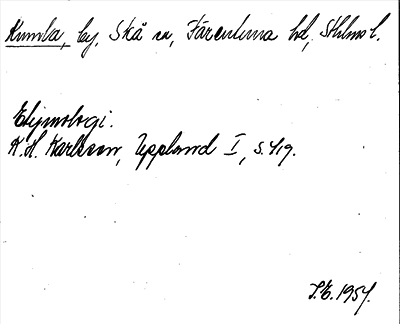 Kumla, by, Skå sn, Färentuna hd, Sthlms l.
Etymologi.
K. H. Karlsson, Uppland I, s. 419.
I.E. 1954.